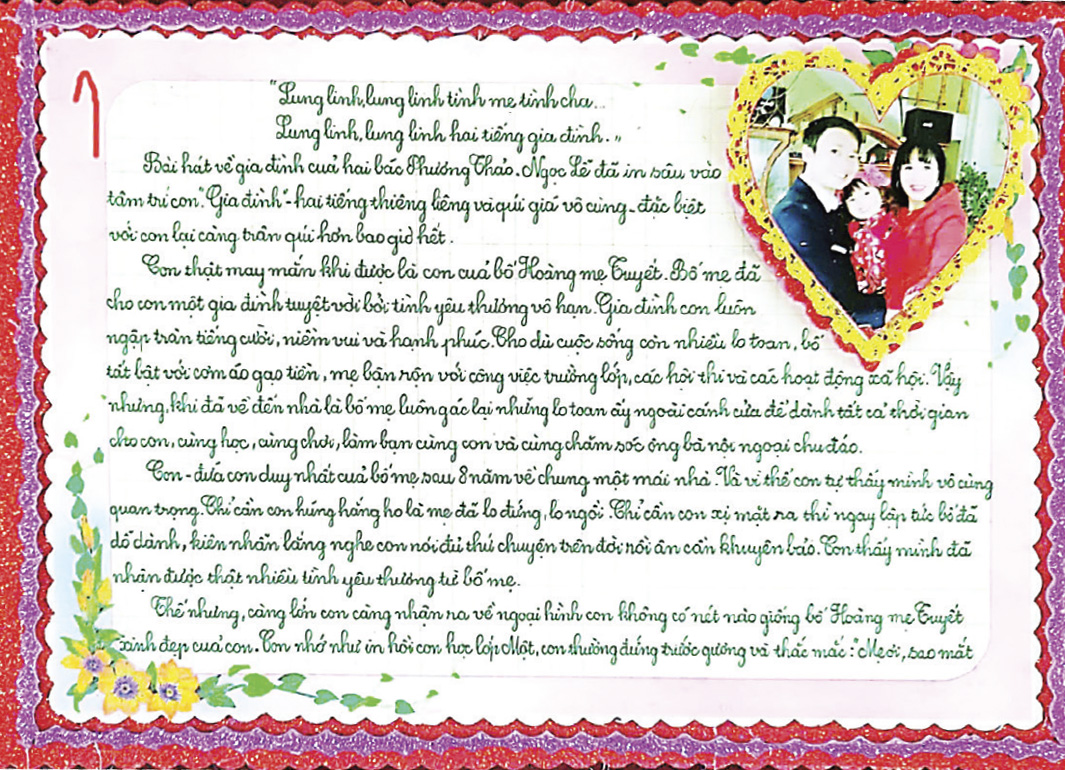 "Lung linh, lung linh tình mẹ tình cha...
Lung linh, lung linh hai tiếng gia đình."
Bài hát về gia đình của hai bác Phương Thảo - Ngọc Lễ đã in sâu vào
tâm trí con. "Gia đình" - hai tiếng thiêng liêng và quí giá vô cùng - đặc biệt
với con lại càng trân quí hơn bao giờ hết.
Con thật may mắn khi được là con của bố Hoàng mẹ Tuyết. Bố mẹ đã
cho con một gia đình tuyệt vời bởi tình yêu thương vô hạn. Gia đình con luôn
ngập tràn tiếng cười, niềm vui và hạnh phúc. Cho dù cuộc sống còn nhiều lo toan, bố
tất bật với cơm áo gạo tiền, mẹ bận rộn với công việc trường lớp, các hội thi và các hoạt động xã hội. Vậy
nhưng, khi đã về đến nhà là bố mẹ luôn gác lại những lo toan ấy ngoài cánh cửa để dành tất cả thời gian
cho con, cùng học, cùng chơi, làm bạn cùng con và cùng chăm sóc ông bà nội ngoại chu đáo.
Con - đứa con duy nhất của bố mẹ sau 8 năm về chung một mái nhà. Và vì thế con tự thấy mình vô cùng
quan trọng. Chỉ cần con húng hắng ho là mẹ đã lo đứng, lo ngồi. Chỉ cần con xị mặt ra thì ngay lập tức bố đã
dỗ dành, kiên nhẫn lắng nghe con nói đủ thứ chuyện trên đời rồi ân cần khuyên bảo. Con thấy mình đã
nhận được thật nhiều tình yêu thương từ bố mẹ.
Thế nhưng, càng lớn con càng nhận ra về ngoại hình con không có nét nào giống bố Hoàng mẹ Tuyết
xinh đẹp của con. Con nhớ như in hồi con học lớp Một, con thường đứng trước gương và thắc mắc: "Mẹ ơi, sao mắt
1